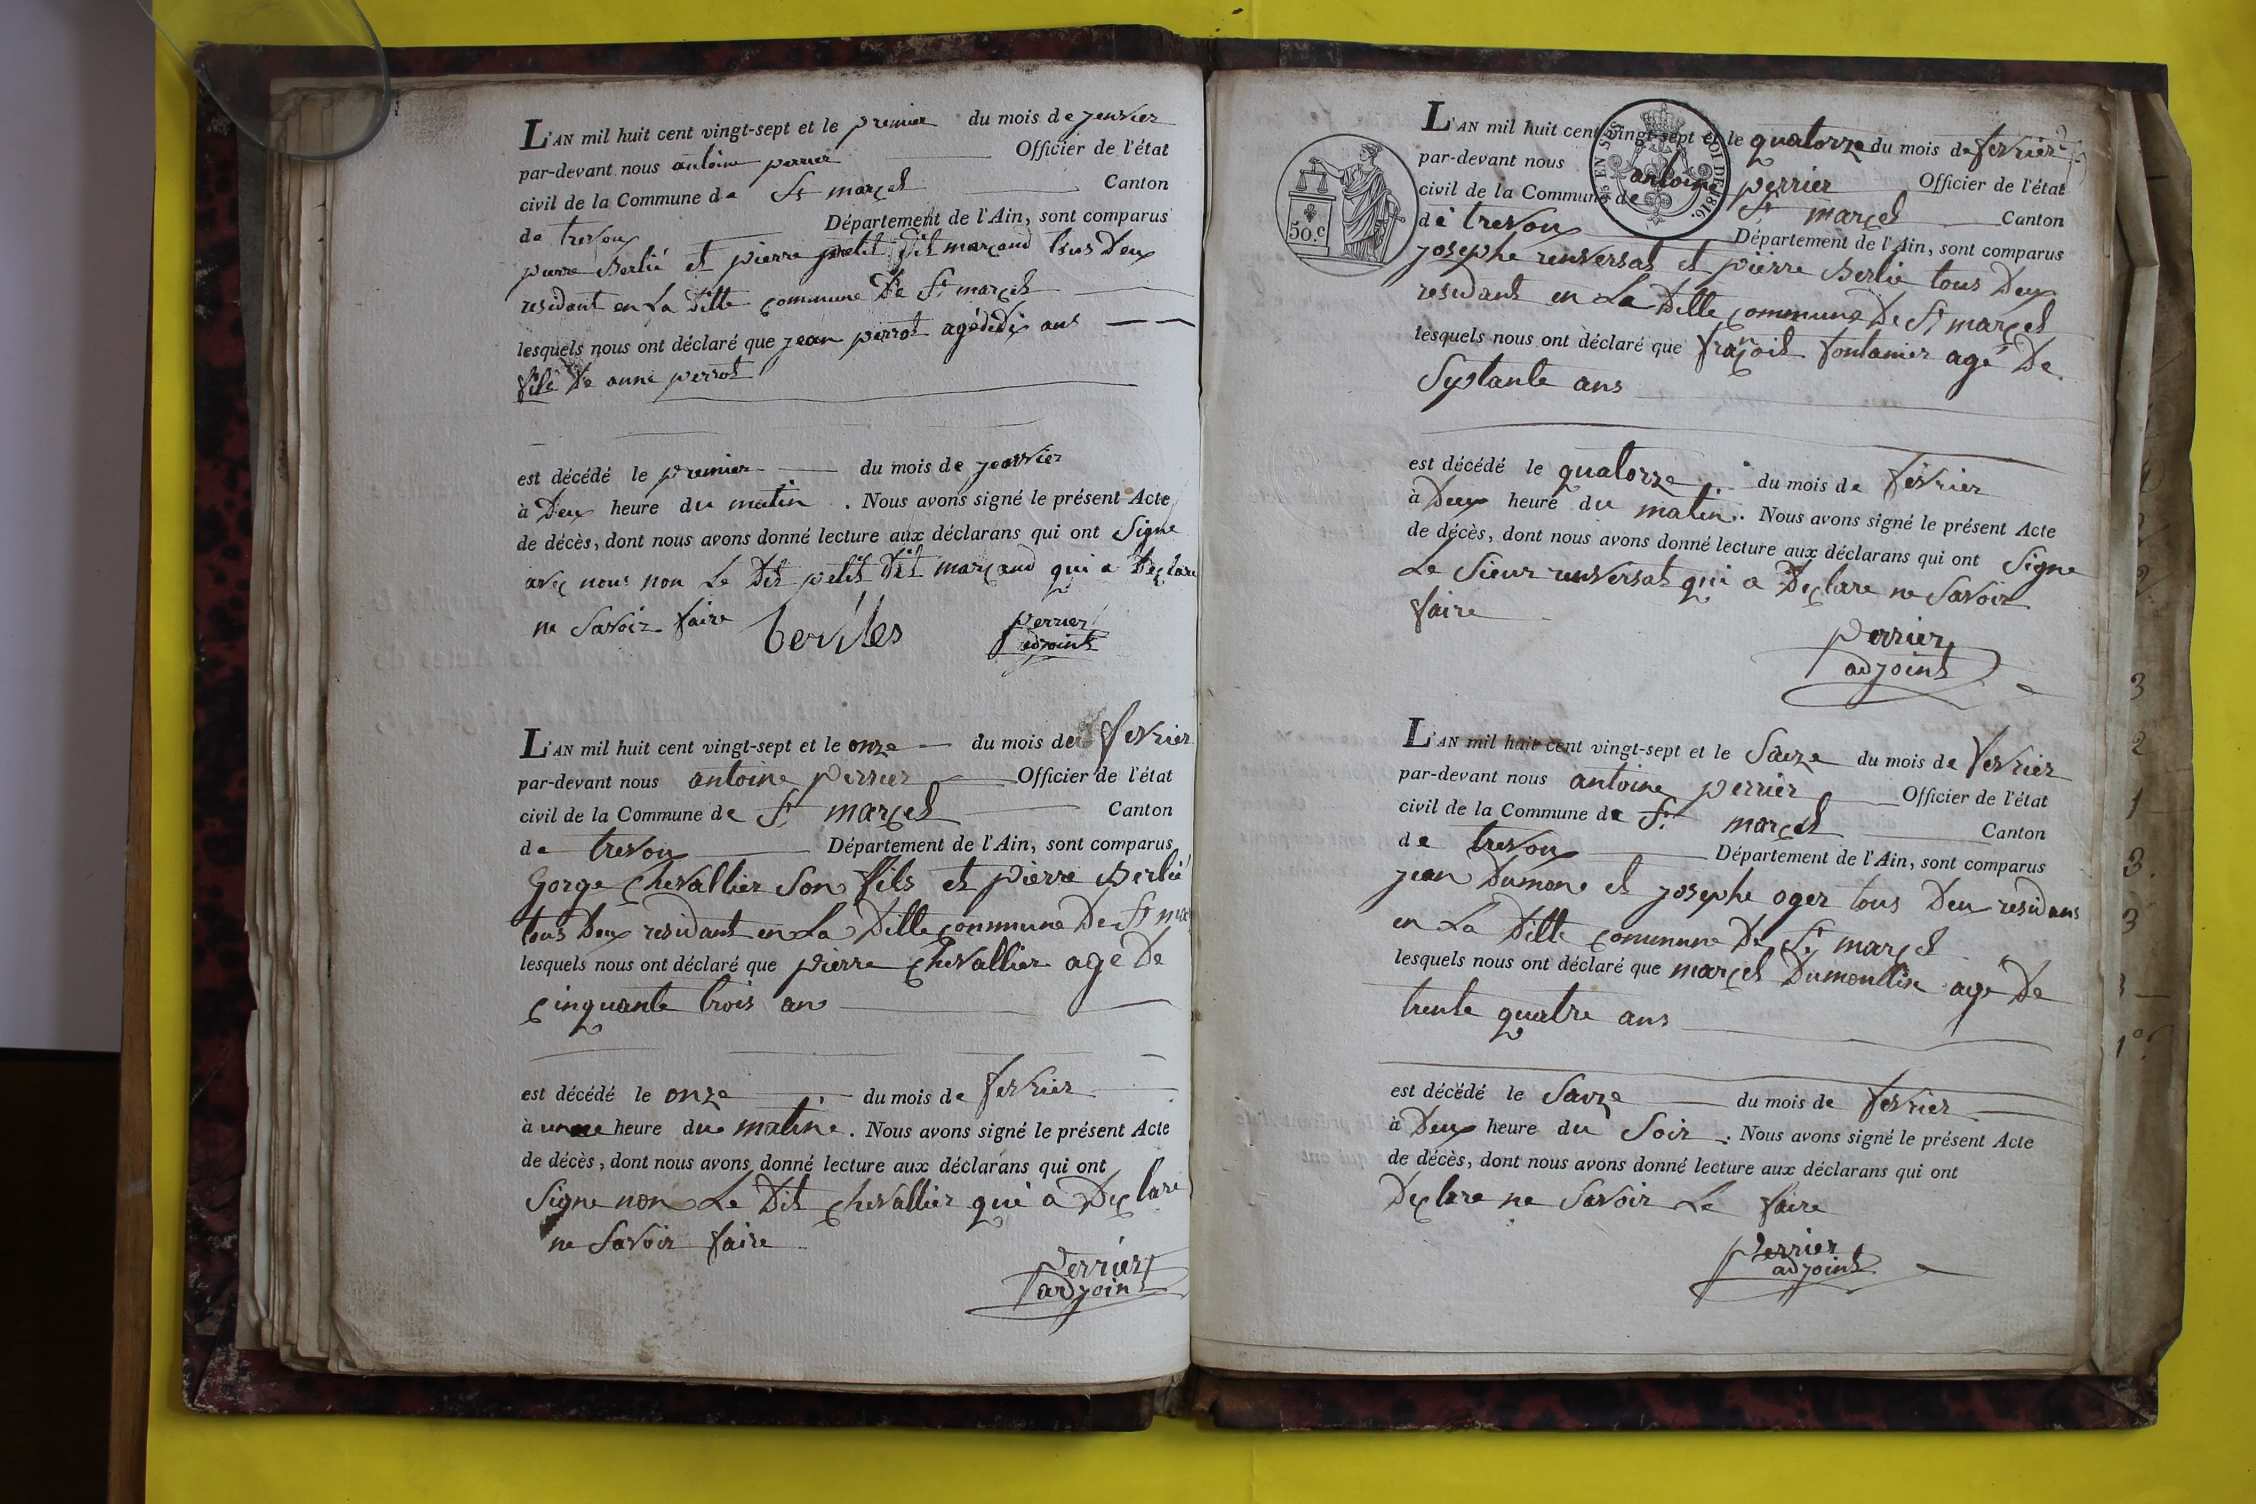 L'AN mil huit cent vingt-sept et le premier du mois de jenvier
par-devant nous antoine perrier Officier de l'état
civil de la Commune de St marcel Canton
de trevou Département de l'Ain, sont comparus
pierre Berlié et pierre petit dit marcand tous Deux
residant en La ditte commune De St marcel
lesquels nous ont déclaré que jean perrot agé de dix ans
fils De anne perrot
est décédé le premier du mois de janvier
à Deux heure du matin. Nous avons signé le présent Acte
de décès, dont nous avons donné lecture aux déclarans qui ont Signe
avec nous non Le Dit petit Dit marcand qui a Declare
ne Savoir faire
perrier
adjoint
L'AN mil huit cent vingt-sept et le onze du mois de fevrier
par-devant nous antoine perrier Officier de l'état
civil de la Commune de St marcel Canton
de trevou Département de l'Ain, sont comparus
Gorge chevallier Son fils et pierre Berlié
tous Deux residant en La Ditte commune De St
lesquels nous ont déclaré que pierre chevallier age De
cinquante trois an
est décédé le onze du mois de fevrier
à heure du matin. Nous avons signé le présent Acte
de décès, dont nous avons donné lecture aux déclarans qui ont
Signe non Le Dit chevallier qui a Declare
ne Savoir faire
Perrier
adjoint
L'AN mil huit cent vingt-sept et le quatorze du mois de fevrier
par-devant nous antoine perrier Officier de l'état
civil de la Commune de St marcel Canton
de trevou Département de l'Ain, sont comparus
50.c
OI DE 1816.
josephe renversat et pierre Berlie tous Deux
residant en La Ditte commune De St marcel
lesquels nous ont déclaré que françois fontanier agé De
Septante ans
est décédé le quatorze du mois de fevrier
à Deux heure du matin. Nous avons signé le présent Acte
de décès, dont nous avons donné lecture aux déclarans qui ont Signe
Le Sieur renversat qui a Declare ne Savoir
faire
perrier
adjoint
L'AN mil huit cent vingt-sept et le Saize du mois de fevrier
par-devant nous antoine perrier Officier de l'état
civil de la Commune de St marcel Canton
de trevou Département de l'Ain, sont comparus
jean Dumon et josephe oger tous Deu residans
en La Ditte commune De St marcel
lesquels nous ont déclaré que marcel Dumoullin agé De
trente quatre ans
est décédé le Saize du mois de fevrier
à Deux heure du Soir. Nous avons signé le présent Acte
de décès, dont nous avons donné lecture aux déclarans qui ont
Declare ne Savoir Le faire
perrier
adjoint
3
2
1
3.
3